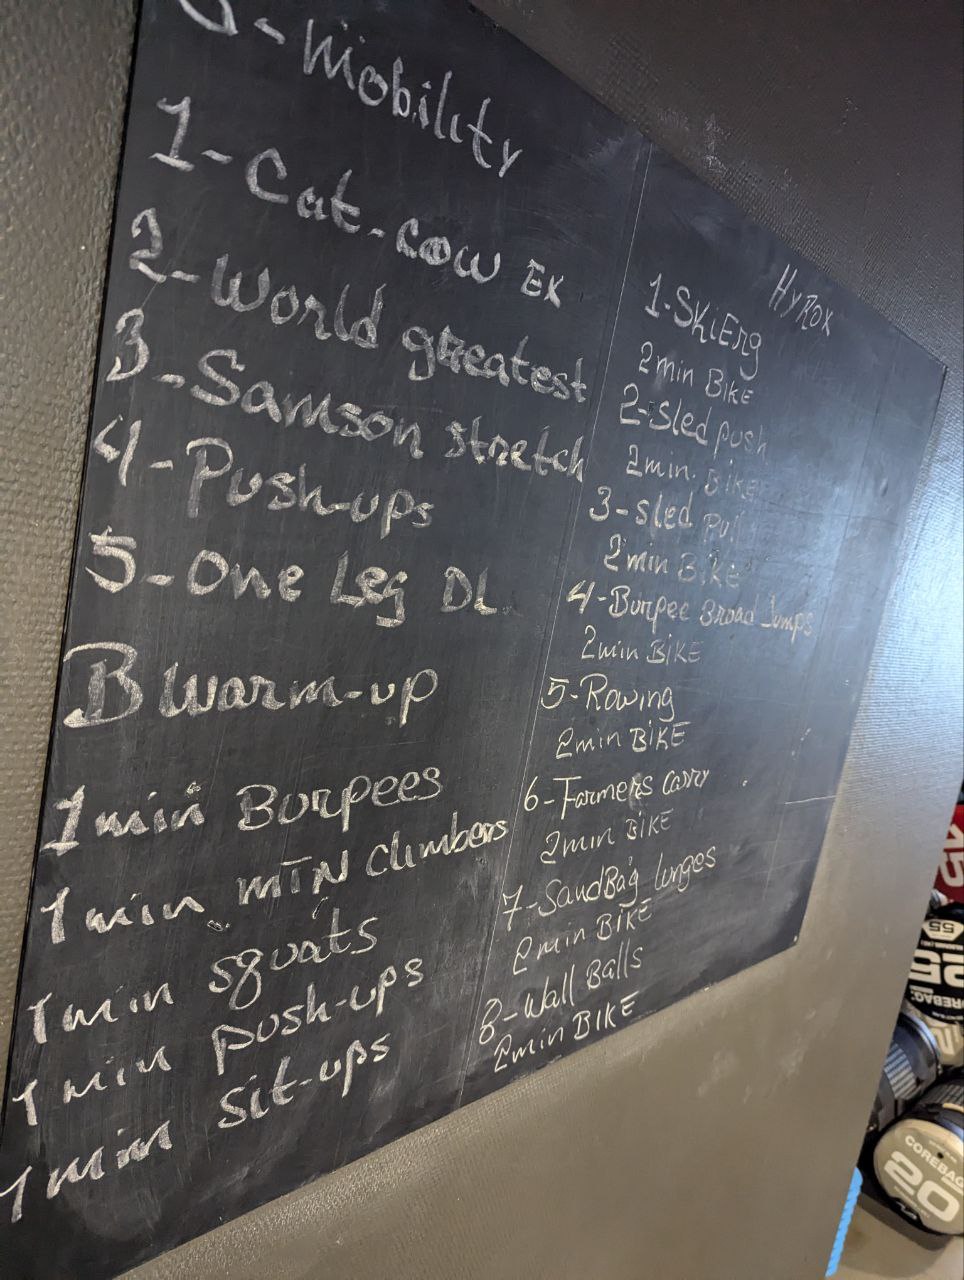 - Mobility
1- Cat-cow EX
2- World greatest
3- Samson stretch
4- Push-ups
5- One Leg DL
B warm-up
1 min Burpees
1 min MTN climbers
1 min squats
1 min push-ups
1 min sit-ups
HyRox
1- SkiErg
2min BIKE
2- sled push
2min. BIKE
3- sled Pull
2min BIKE
4- Burpee Broad Jumps
2min BIKE
5- Rowing
2min BIKE
6- Farmers carry
2min BIKE
7- SandBag lunges
2min BIKE
8- Wall Balls
2min BIKE
55
25
COREBAG
COREBAG
20